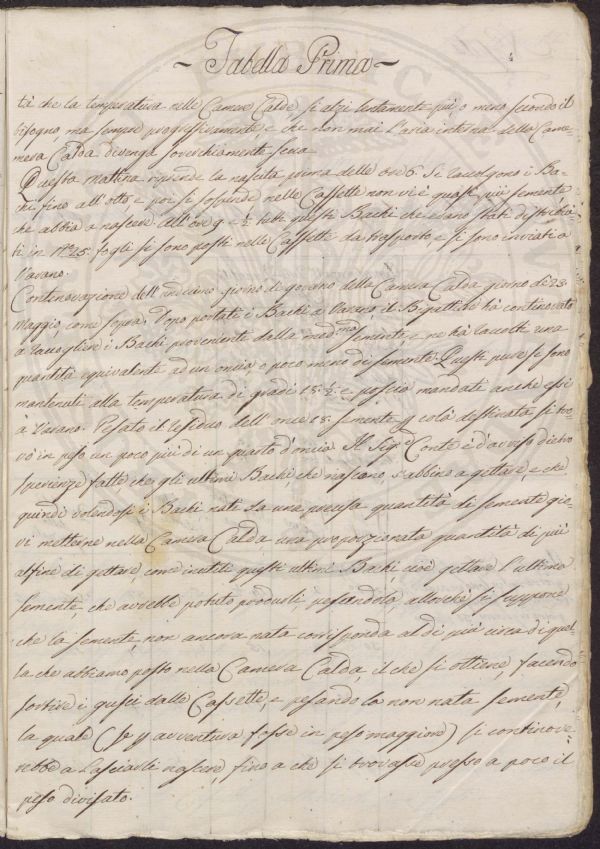 ~ Tabella Prima ~
tà che la temperatura nelle Camere Calde si alzi lentamente più, o meno secondo il
bisogno, ma sempre progressivamente, e che non mai l'aria interna della Cam-
mera Calda divenga soverchiamente secca.
Questa mattina riprende la nascita prima delle ore 6. Si raccolgono i Ba-
chi fino all'otto e poi si sospende nelle Cassette non vi è quasi più semente
che abbia a nascere. All'ore 9 e ½ tutti questi Bachi che erano stati distribui-
ti in N.° 25. fogli si sono posti nelle Cassette da trasporto, e si sono inviati a
Varano.
Continovazione dell' undecimo giorno di governo della Camera Calda giorno di 23
Maggio, come sopra. Dopo portati i Bachi a Varano il Bigatti che hà continovato
a raccogliere i Bachi proveniente dalla med.ma semente, e ne hà raccolti una
quantità equivalente ad un oncia, o poco meno di semente. Questi pure si sono
mantenuti alla temperatura di gradi 15. ½ e poscia mandati anche essi
à Varano. Pesato il residuo dell' once 18. semente p colà destinata si tro-
vò in peso un poco più di un quarto d'oncia. Il Sig.r Conte è d'avviso dietro
sperienze fatte che gli ultimi Bachi, che nascono, s'abbino a gettare, e che
quindi volendosi i Bachi nati da una precisa quantità di semente gio-
vi metterne nella Camera Calda una proporzionata quantità di più
affine di gettare, come inutili questi ultimi Bachi, cioè gettare l'ultima
semente, che avrebbe potuto produrli, pesandola allorchè si suppone
che la semente, non ancora nata corrisponda al di più circa di quel-
la che abbiamo posto nella Camera Calda, il che si ottiene, facendo
sortire i gusci dalle Cassette, e pesando la non nata semente,
la quale (se p avventura fosse in peso maggiore) si continove-
rebbe a lasciarli nascere, fino a che si trovasse presso a poco il
peso divisato.